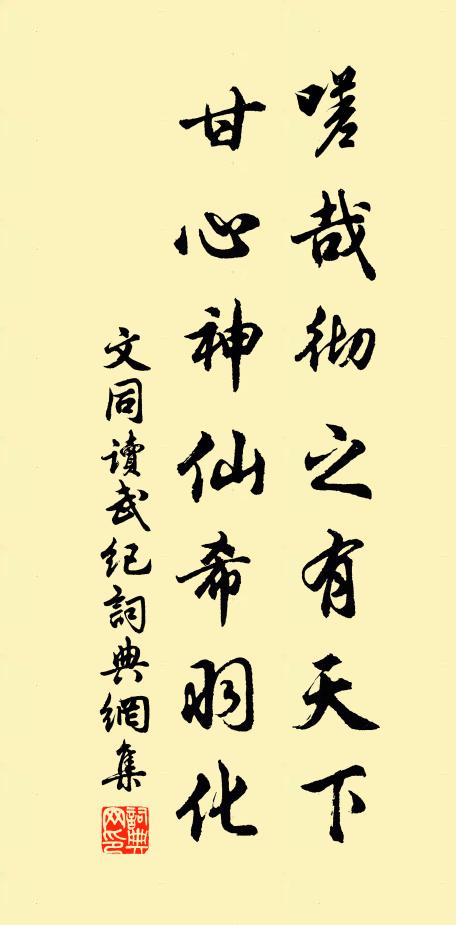 嗟哉彻之有天下
甘心神仙希羽化
文同讀武紀詞典網集
詞典
网印